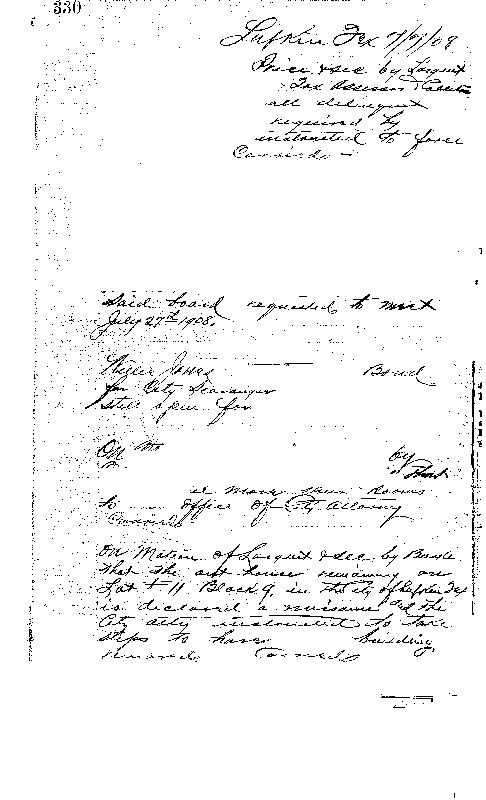 330
Lufkin Tex 7/21/08
Price & sec by Sarquit
Tax Assessor
all delinquent
required by
instructed to force
Carried
Said board requested to meet
July 27th 1908.
Bond
for City Scavenger
still open for
On Mo
by
move your rooms
to office of City Attorney
Carried
On Motion of Sarquit & sec by
that the out house remaining on
Lot # 11 Block 9, in the city of Lufkin Tex
is declared a nuisance and the
City atty instructed to take
steps to have building
Carried